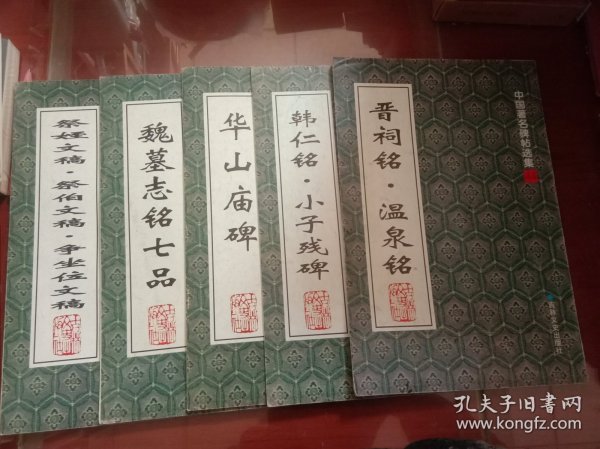 祭姪文稿·祭伯文稿·争坐位文稿
魏墓志铭七品
华山庙碑
韩仁铭·小子残碑
晋祠铭·温泉铭
中国著名碑帖选集
吉林文史出版社
孔夫子旧书网
www.kongfz.com